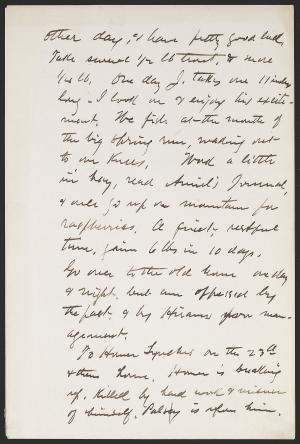 other day, & have pretty good luck
Take several 1/2 lb trout, & more
1/4 lb. One day J. takes one 11 inches
long - I look on & enjoy his excite-
ment. We fish at the mouth of
the big spring run, wading out
to our knees. Work a little
in hay, read Amiel's Journal,
& once go up on mountain for
raspberries. A quiet restful
time, gain 6 lbs in 10 days.
Go over to the old home one day
& night, but am oppressed by
the past & by Hiram's poor man-
agement.
To Homer Lynch's on the 23rd
& then home. Homer is breaking
up, killed by hard work &
of himself. Palsy is upon him.